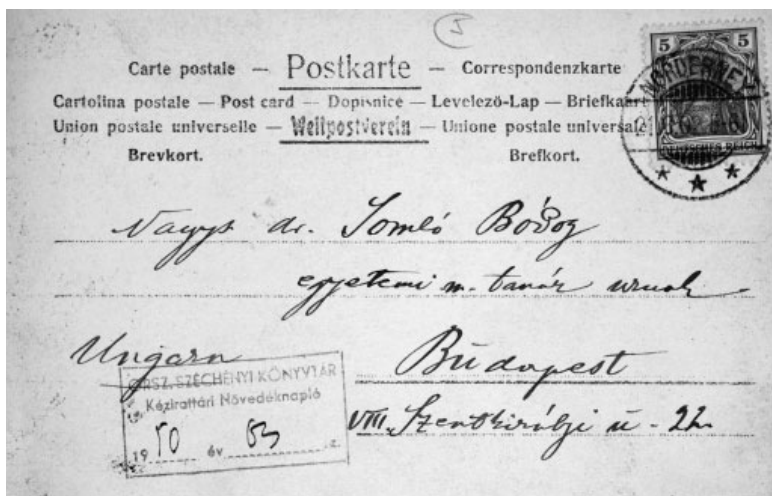 5
Carte postale — Postkarte — Correspondenzkarte
Cartolina postale — Post card — Dopisnice — Levelező-Lap — Briefkaart
Union postale universelle — Weltpostverein — Unione postale universale
Brevkort. Brefkort.
5 5
NORDERNEY
DEUTSCHES REICH
Nagys. dr. Somló Bódog
egyetemi m. tanár urnak
Ungarn Budapest
VIII. Szentkirályi u. 22.
ORSZ. SZÉCHÉNYI KÖNYVTÁR
Kézirattári Növedéknapló
19 50 év 63 z.